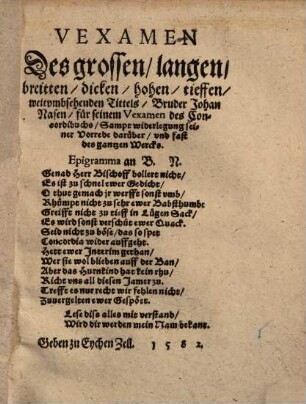 VEXAMEN
Des grossen/ langen/
breitten/ dicken/ hohen/ tieffen/
weitvmbsehenden Tittels/ Bruder Johan
Nasen/ für seinem Vexamen des Con-
cordibuchs/ Sampt widerlegung sei-
ner Vorrede darüber/ vnd fast
des gantzen Wercks.
Epigramma an B. N.
Genad Herr Bischoff bollert nicht/
Es ist zu schnel ewer Gedicht/
O thut gemach jr werfft sonst vmb/
Rhümpt nicht zu sehr ewer Babsthumb:
Greifft nicht zu tieff in Lügen Sack/
Es wird sonst verschüt ewer Quack.
Seid nicht zu böse/ das so spet
Concordia wider auffgeht.
Hett ewer Interim gethan/
Wer sie wol blieben auff der Ban/
Aber das Hurnkind hat kein rhu/
Richt vns all diesen Jamer zu.
Trefft es nur recht wir fehlen nicht/
Zuuergelten ewer Gespött.
Lese diß alles mit verstand/
Wird dir werden mein Nam bekant.
Geben zu Eychen Zell. 1582.